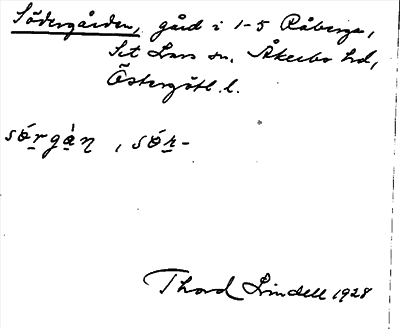 Södergården, gård i 1-5 Råberga,
S:t Lars sn. Åkerbo hd,
Östergötl. l.
sǿrgàn, sǿr-
Thord Lindell 1928